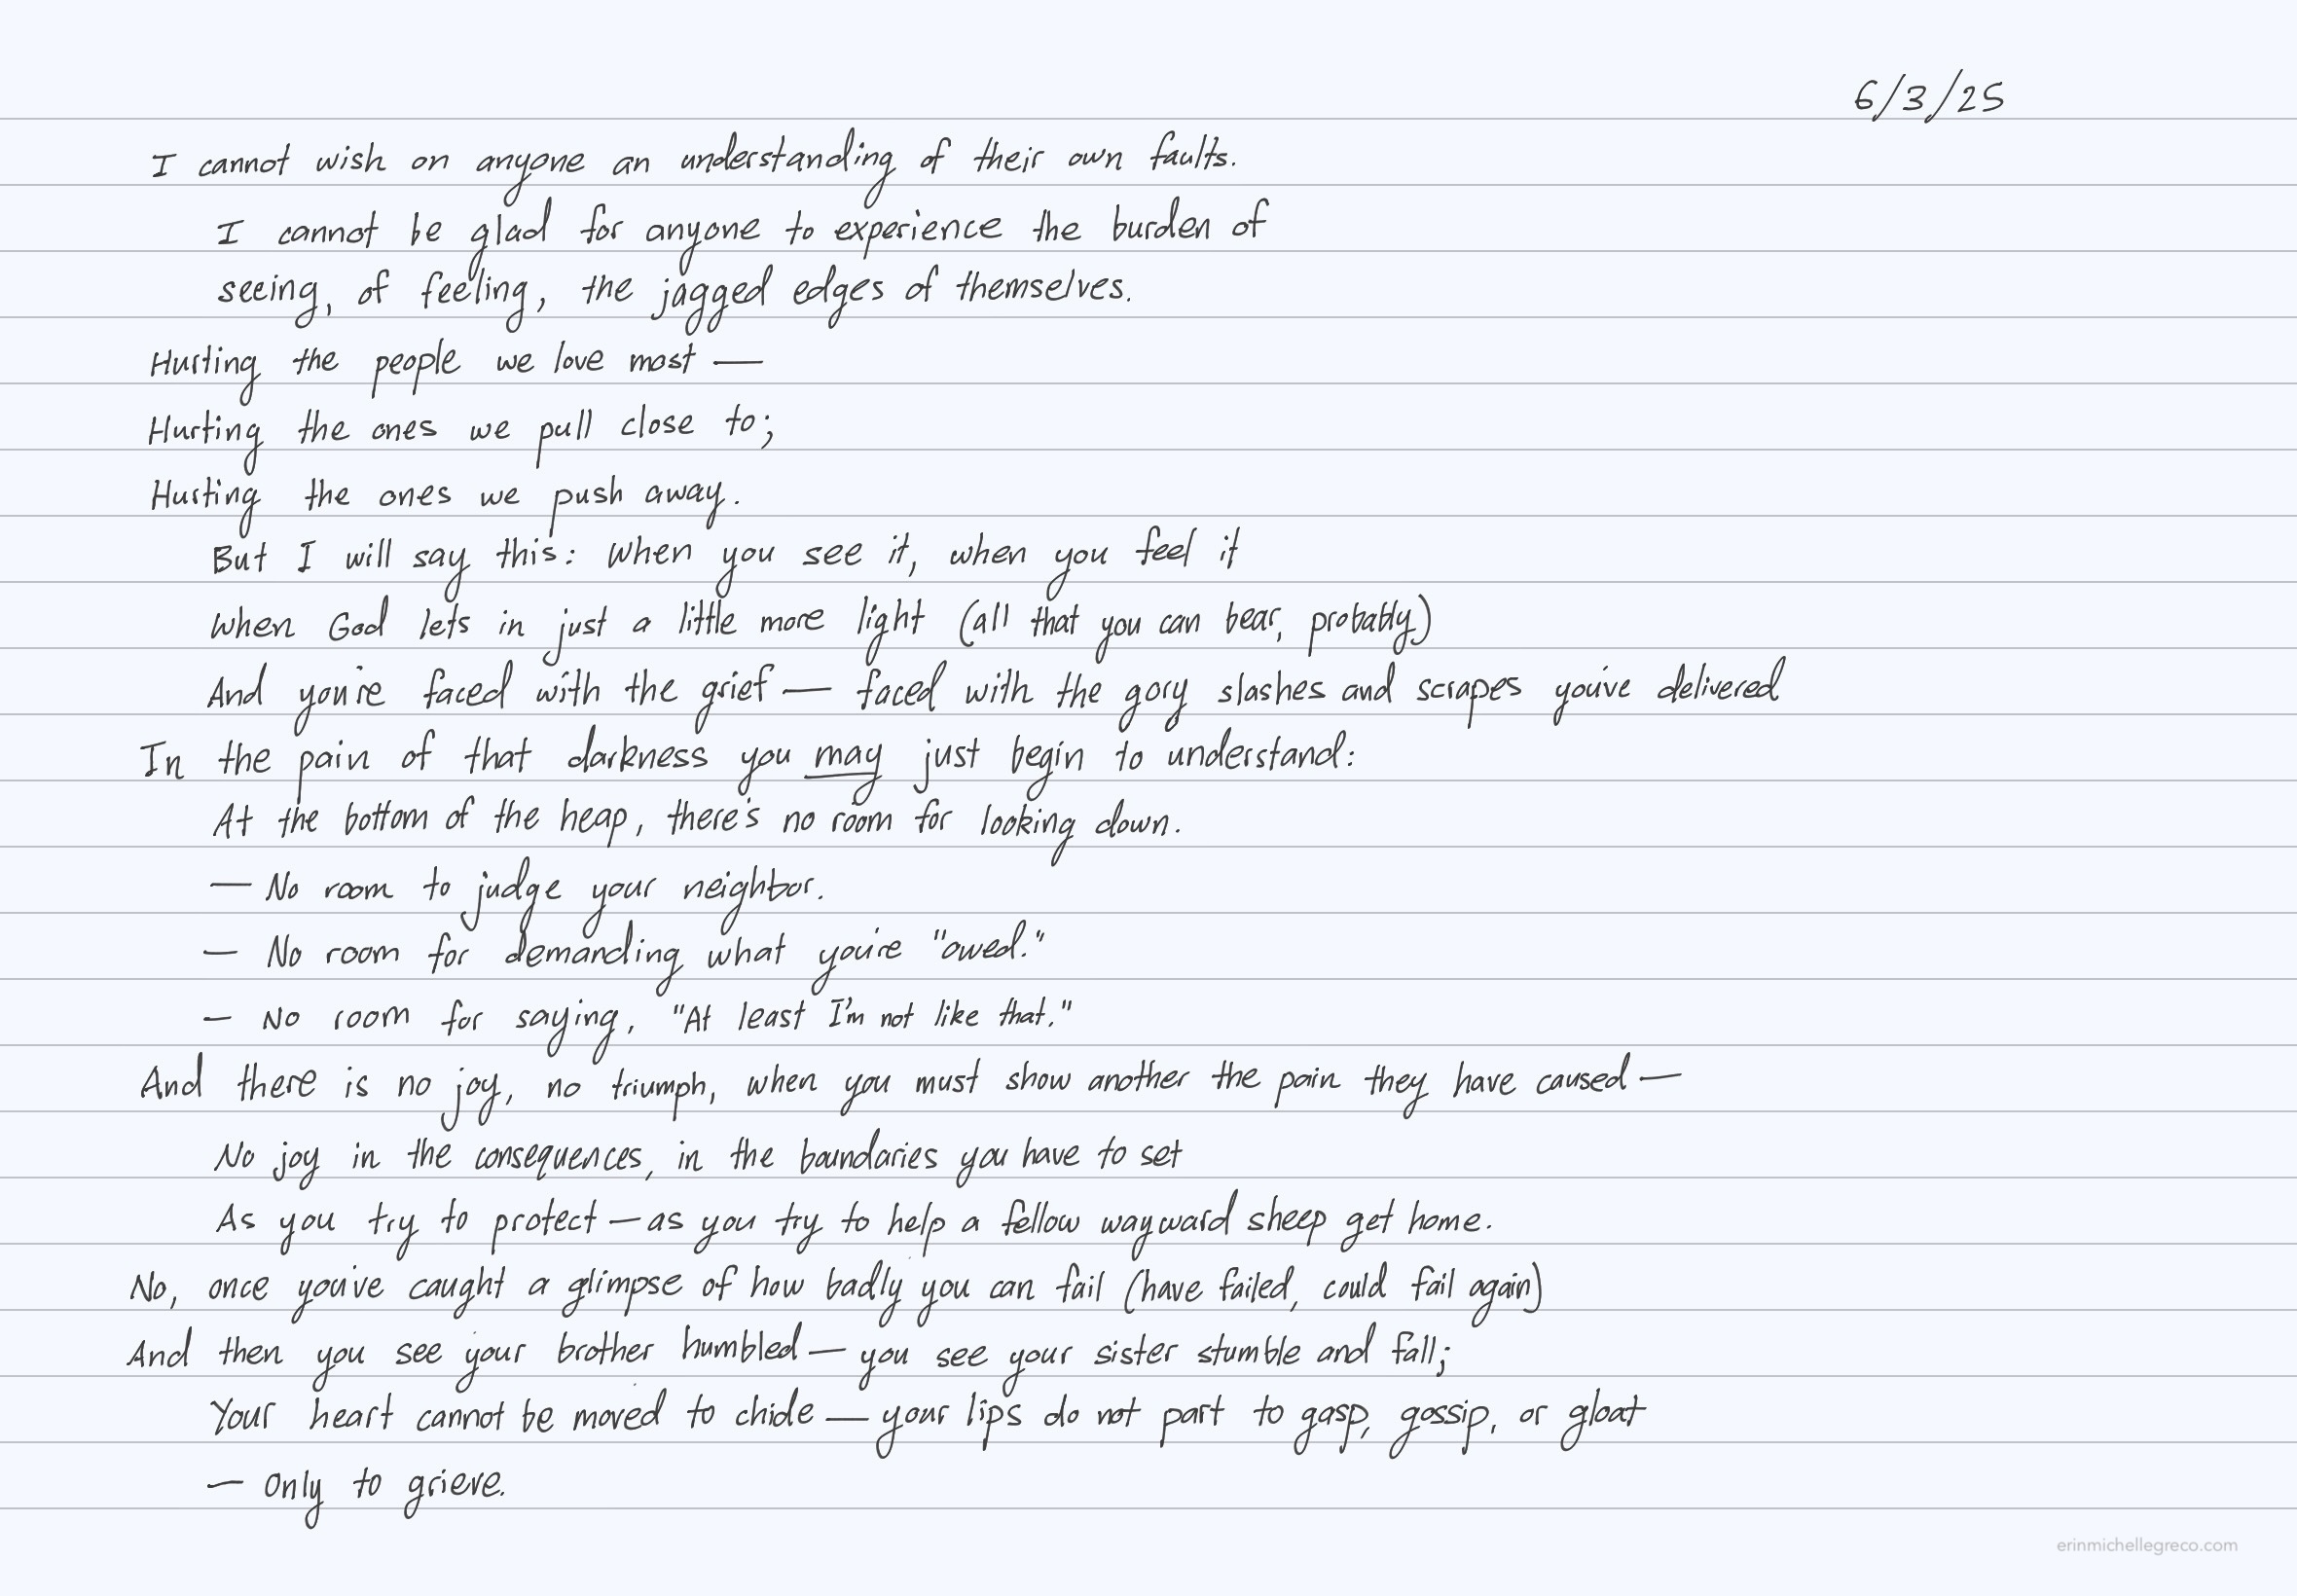 6/3/25
I cannot wish on anyone an understanding of their own faults.
I cannot be glad for anyone to experience the burden of
seeing, of feeling, the jagged edges of themselves.
Hurting the people we love most —
Hurting the ones we pull close to;
Hurting the ones we push away.
But I will say this: When you see it, when you feel it
When God lets in just a little more light (all that you can bear, probably)
And you're faced with the grief — faced with the gory slashes and scrapes you've delivered
In the pain of that darkness you may just begin to understand:
At the bottom of the heap, there's no room for looking down.
— No room to judge your neighbor.
— No room for demanding what you're "owed."
— No room for saying, "At least I'm not like that."
And there is no joy, no triumph, when you must show another the pain they have caused —
No joy in the consequences, in the boundaries you have to set
As you try to protect — as you try to help a fellow wayward sheep get home.
No, once you've caught a glimpse of how badly you can fail (have failed, could fail again)
And then you see your brother humbled — you see your sister stumble and fall;
Your heart cannot be moved to chide — your lips do not part to gasp, gossip, or gloat
— Only to grieve.
erinmichellegreco.com